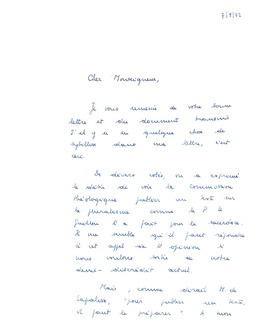 7/9/72
Cher Monseigneur,
Je vous remercie de votre bonne
lettre et du document transmis
S'il y a eu quelque chose de
sybillin dans ma lettre, c'est
De divers côtés, on a exprimé
le désir de voir la commission
théologique publier un texte sur
le pluralisme comme le P. 
l'a fait pour le sacerdoce.
Il me semble qu'il faut répondre
à cet appel de l'opinion si
nous voulons sortir de notre
demi-discrédit actuel.
Mais, comme disait M. de
Lapalisse, "pour publier un texte,
il faut le préparer". A mon